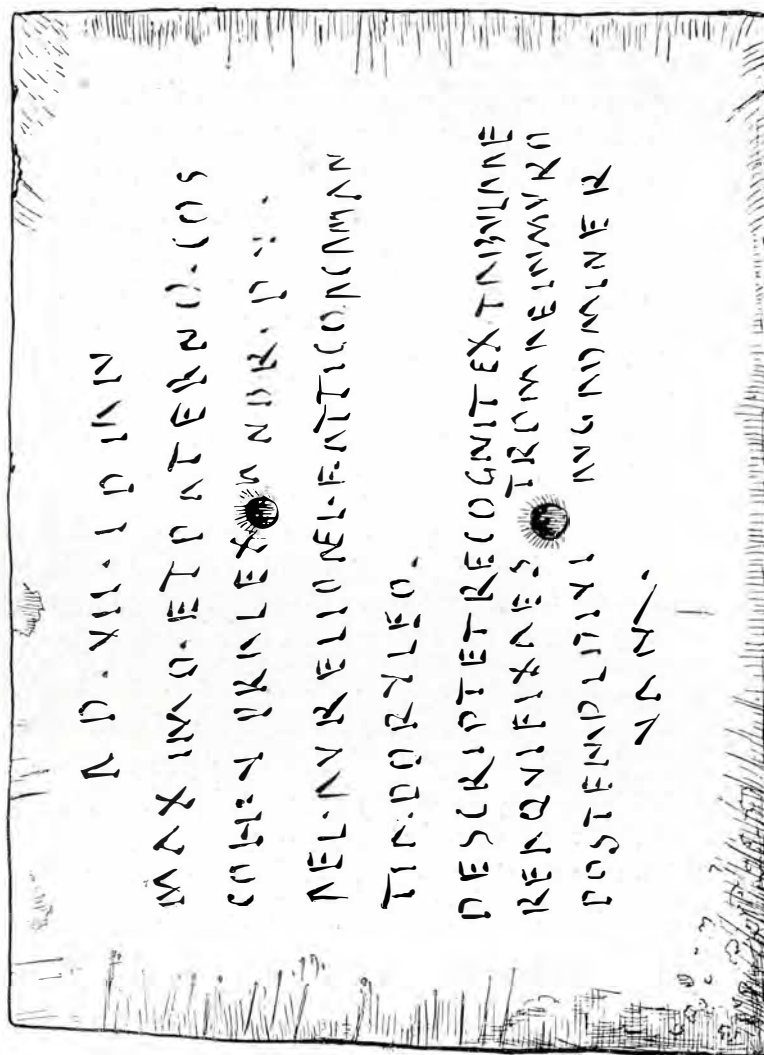 AD·VII·IDIAN
MAXIMO·ETPATERNO·COS
COH·V PRALEXANDR·P·V·
AEL·AVRELIOAEL·F·ATTICO·ACAMAN
TIA·DORYLEO·
DESCRIPTETRECOGNITEXTABVLAAE
REAQVEFIXAEST ROMAEINMVRO
POSTEMPLDIVI AVGADMINER
VAM·